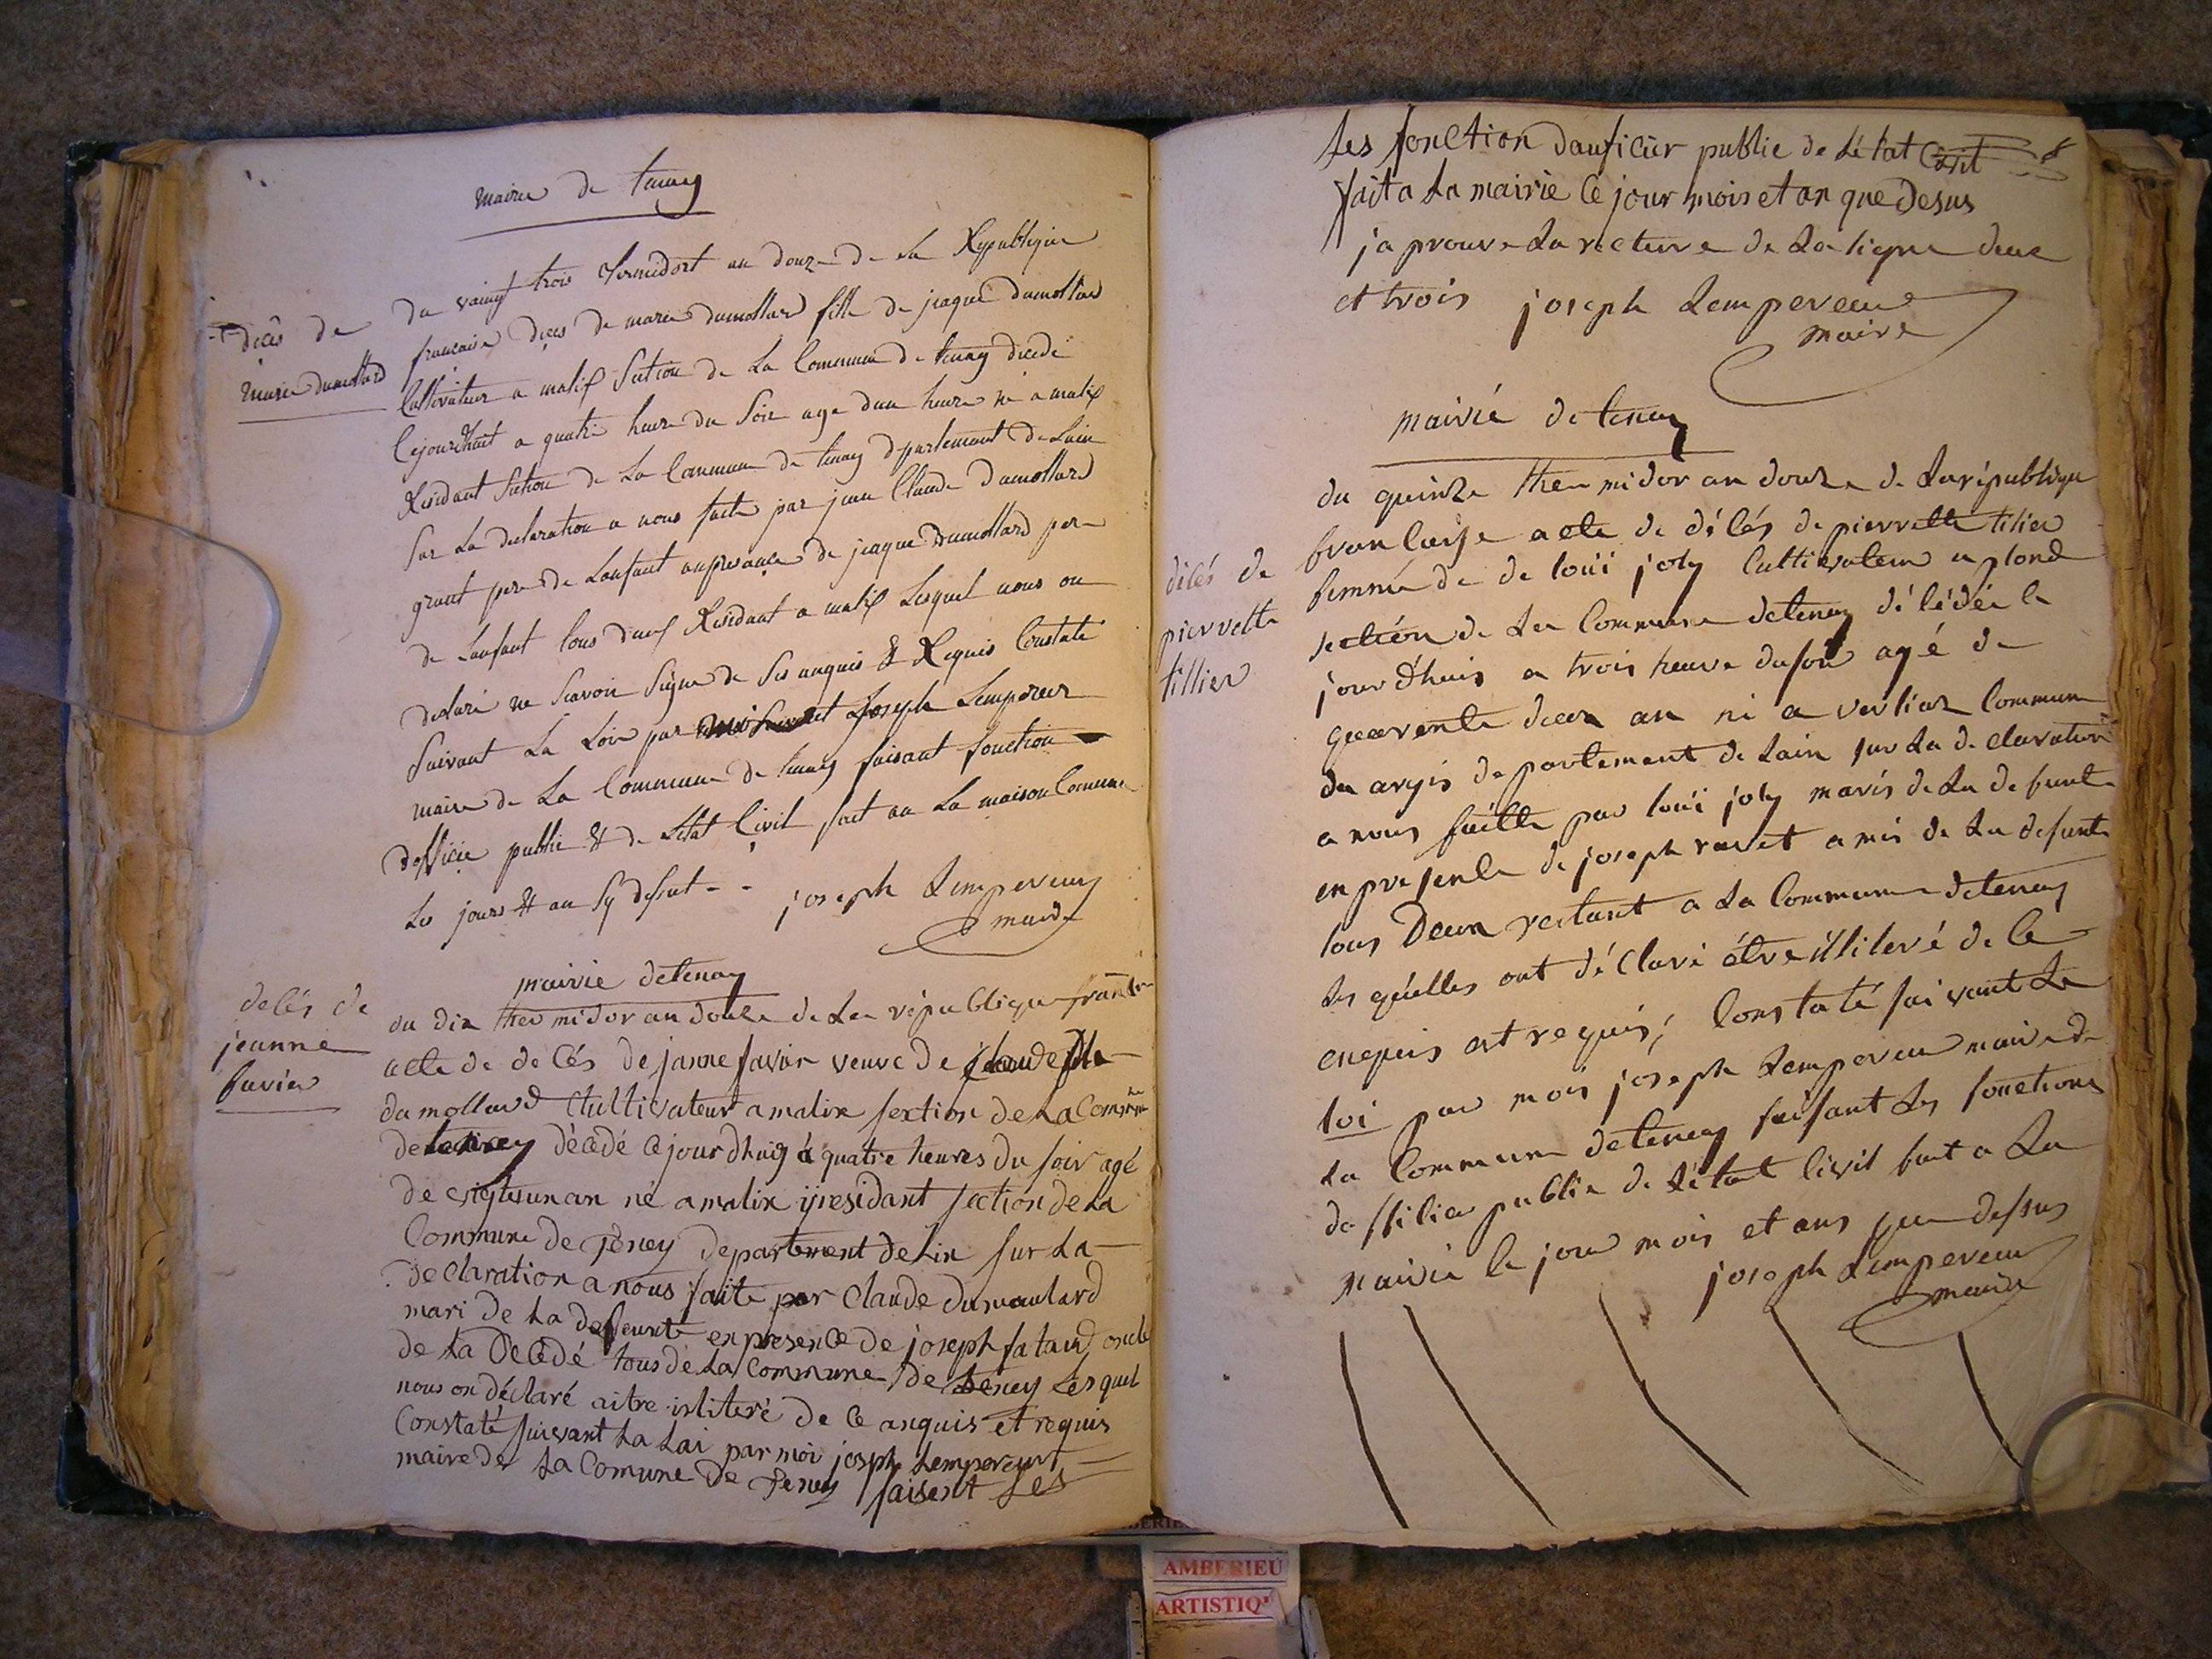 mairie de tenay
dicès de
marie dumollard
du vaingt trois Termidort an douze de la Republique
francaise diçes de marie dumollard fille de jeaque dumollard
Cultivateur a malix Section de La Commune de tenay dicedé
Cejourdhuit a quatre heure du Soir age dun heure né a malix
Residant Section de La Commune de tenay dpartemant de Lain
Sur La declaration a nous faite par jean Claude dumollard
grant pere de Lanfant anpresance de jeaque Dumollard pere
de Lanfant tous deux Residant a malix Lesquel nous on
declaré ne Scavoir Signe de Ses anquis & Requis Constaté
Suivant La Loix par Joseph Lempereur
maire de La Commune de tenay faisant fonction
dofficie public & de Létat Civil fait an La maison Comune
Les jours & an Sy desut - - joseph Lempereur
maire
mairie de tenay
decés de
jeanne
favier
du dix thermidor an douze de La république
acte de decés de janne favier veuve de Claude
dumollard Cultivateur a malix section de La Commune
de tenay décedé cejourdhuig à quatre heures du soir agé
de né a malix ÿresidant section de La
Commune de Teney departement de Lin sur La
declaration a nous faite par Claude dumoulard
mari de La deffeunte en presence de joseph fatard oncle
de La Decedé tous de La Commune de teney Lesquel
nous on déclaré aitre isliteré de Ce anquis et requis
Constaté suisvant La Lai par moi joseph Lempereurt
maire de La Comune de Teney faisent Les
fes fonction daufiCiir publie de Létat Civil
fait a La mairie Ce jour mois et an que Desus
ja prouve La recteure de La ligne deux
et trois joseph Lempereur
maire
mairié de tenay
décés de
pierrette
tillier
du quinze thermidor an douze de La république
francaise acte de décés de pierrette tilier
femme de de louï joly Cultivateur a plond
section de La Commune de tenay décédée le
jourdhuis a trois heure du soir agé de
quarente deux an né a Commune
du argis departement de Lain sur La declaration
a nous faitte par louï joly maris de La defunte
en presence de joseph ravet amis de La defunte
tous Deux restant a La Commune de tenay
Les quélles ont déClaré étre illiteré de Ce
enquis est requis, Constaté suivant La
loi par mois joseph Lempereur maire de
La Commune de tenay faisant Les fonctions
dofficier public de Létat Civil fait a La
mairie le jour mois et ans que dessus
joseph Lempereur
maire
AMBERIEU
ARTISTIQ'